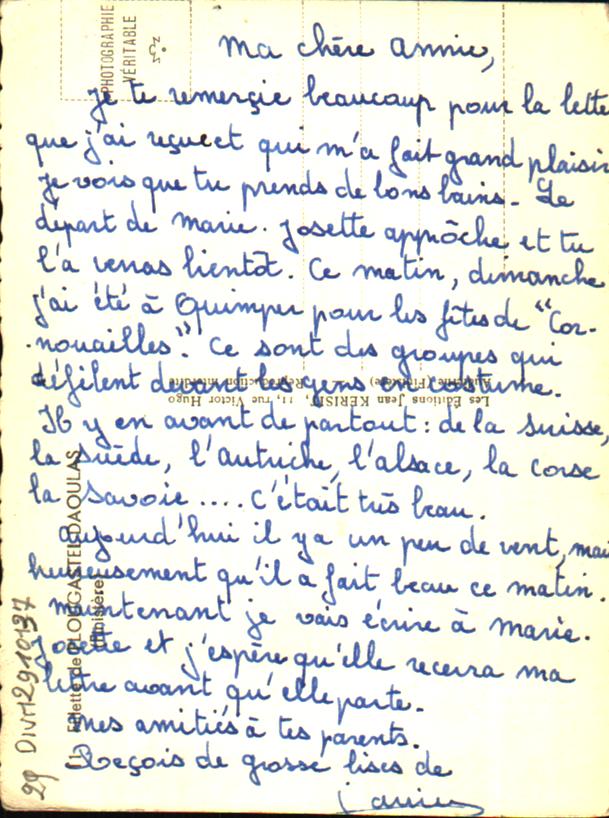 PHOTOGRAPHIE
VÉRITABLE
Ma chère Annie,
Je te remerçie beaucoup pour la lettre
que j'ai reçue et qui m'a fait grand plaisir
Je vois que tu prends de bons bains. Le
départ de Marie-Josette approche et tu
l'a verras bientôt. Ce matin, dimanche
j'ai été à Quimper pour les fêtes de "Cor-
nouailles". Ce sont des groupes qui
défilent devant les gens en costume.
Il y en avant de partout : de la Suisse,
la Suède, l'Autriche, l'Alsace, la Corse
la Savoie .... C'était très beau.
Aujourd'hui il y a un peu de vent, mais
heureusement qu'il a fait beau ce matin.
Maintenant je vais écrire à Marie.
Josette et j'espère qu'elle recevra ma
lettre avant qu'elle parte.
Mes amitiés à tes parents.
Reçois de grosse bises de
Les Éditions Jean KERISIT, 11, rue Victor Hugo
Audierne (Finistère) Reproduction interdite
Fillette de PLOUGASTEL-DAOULAS
(Finistère)
29 DIVM 2910137